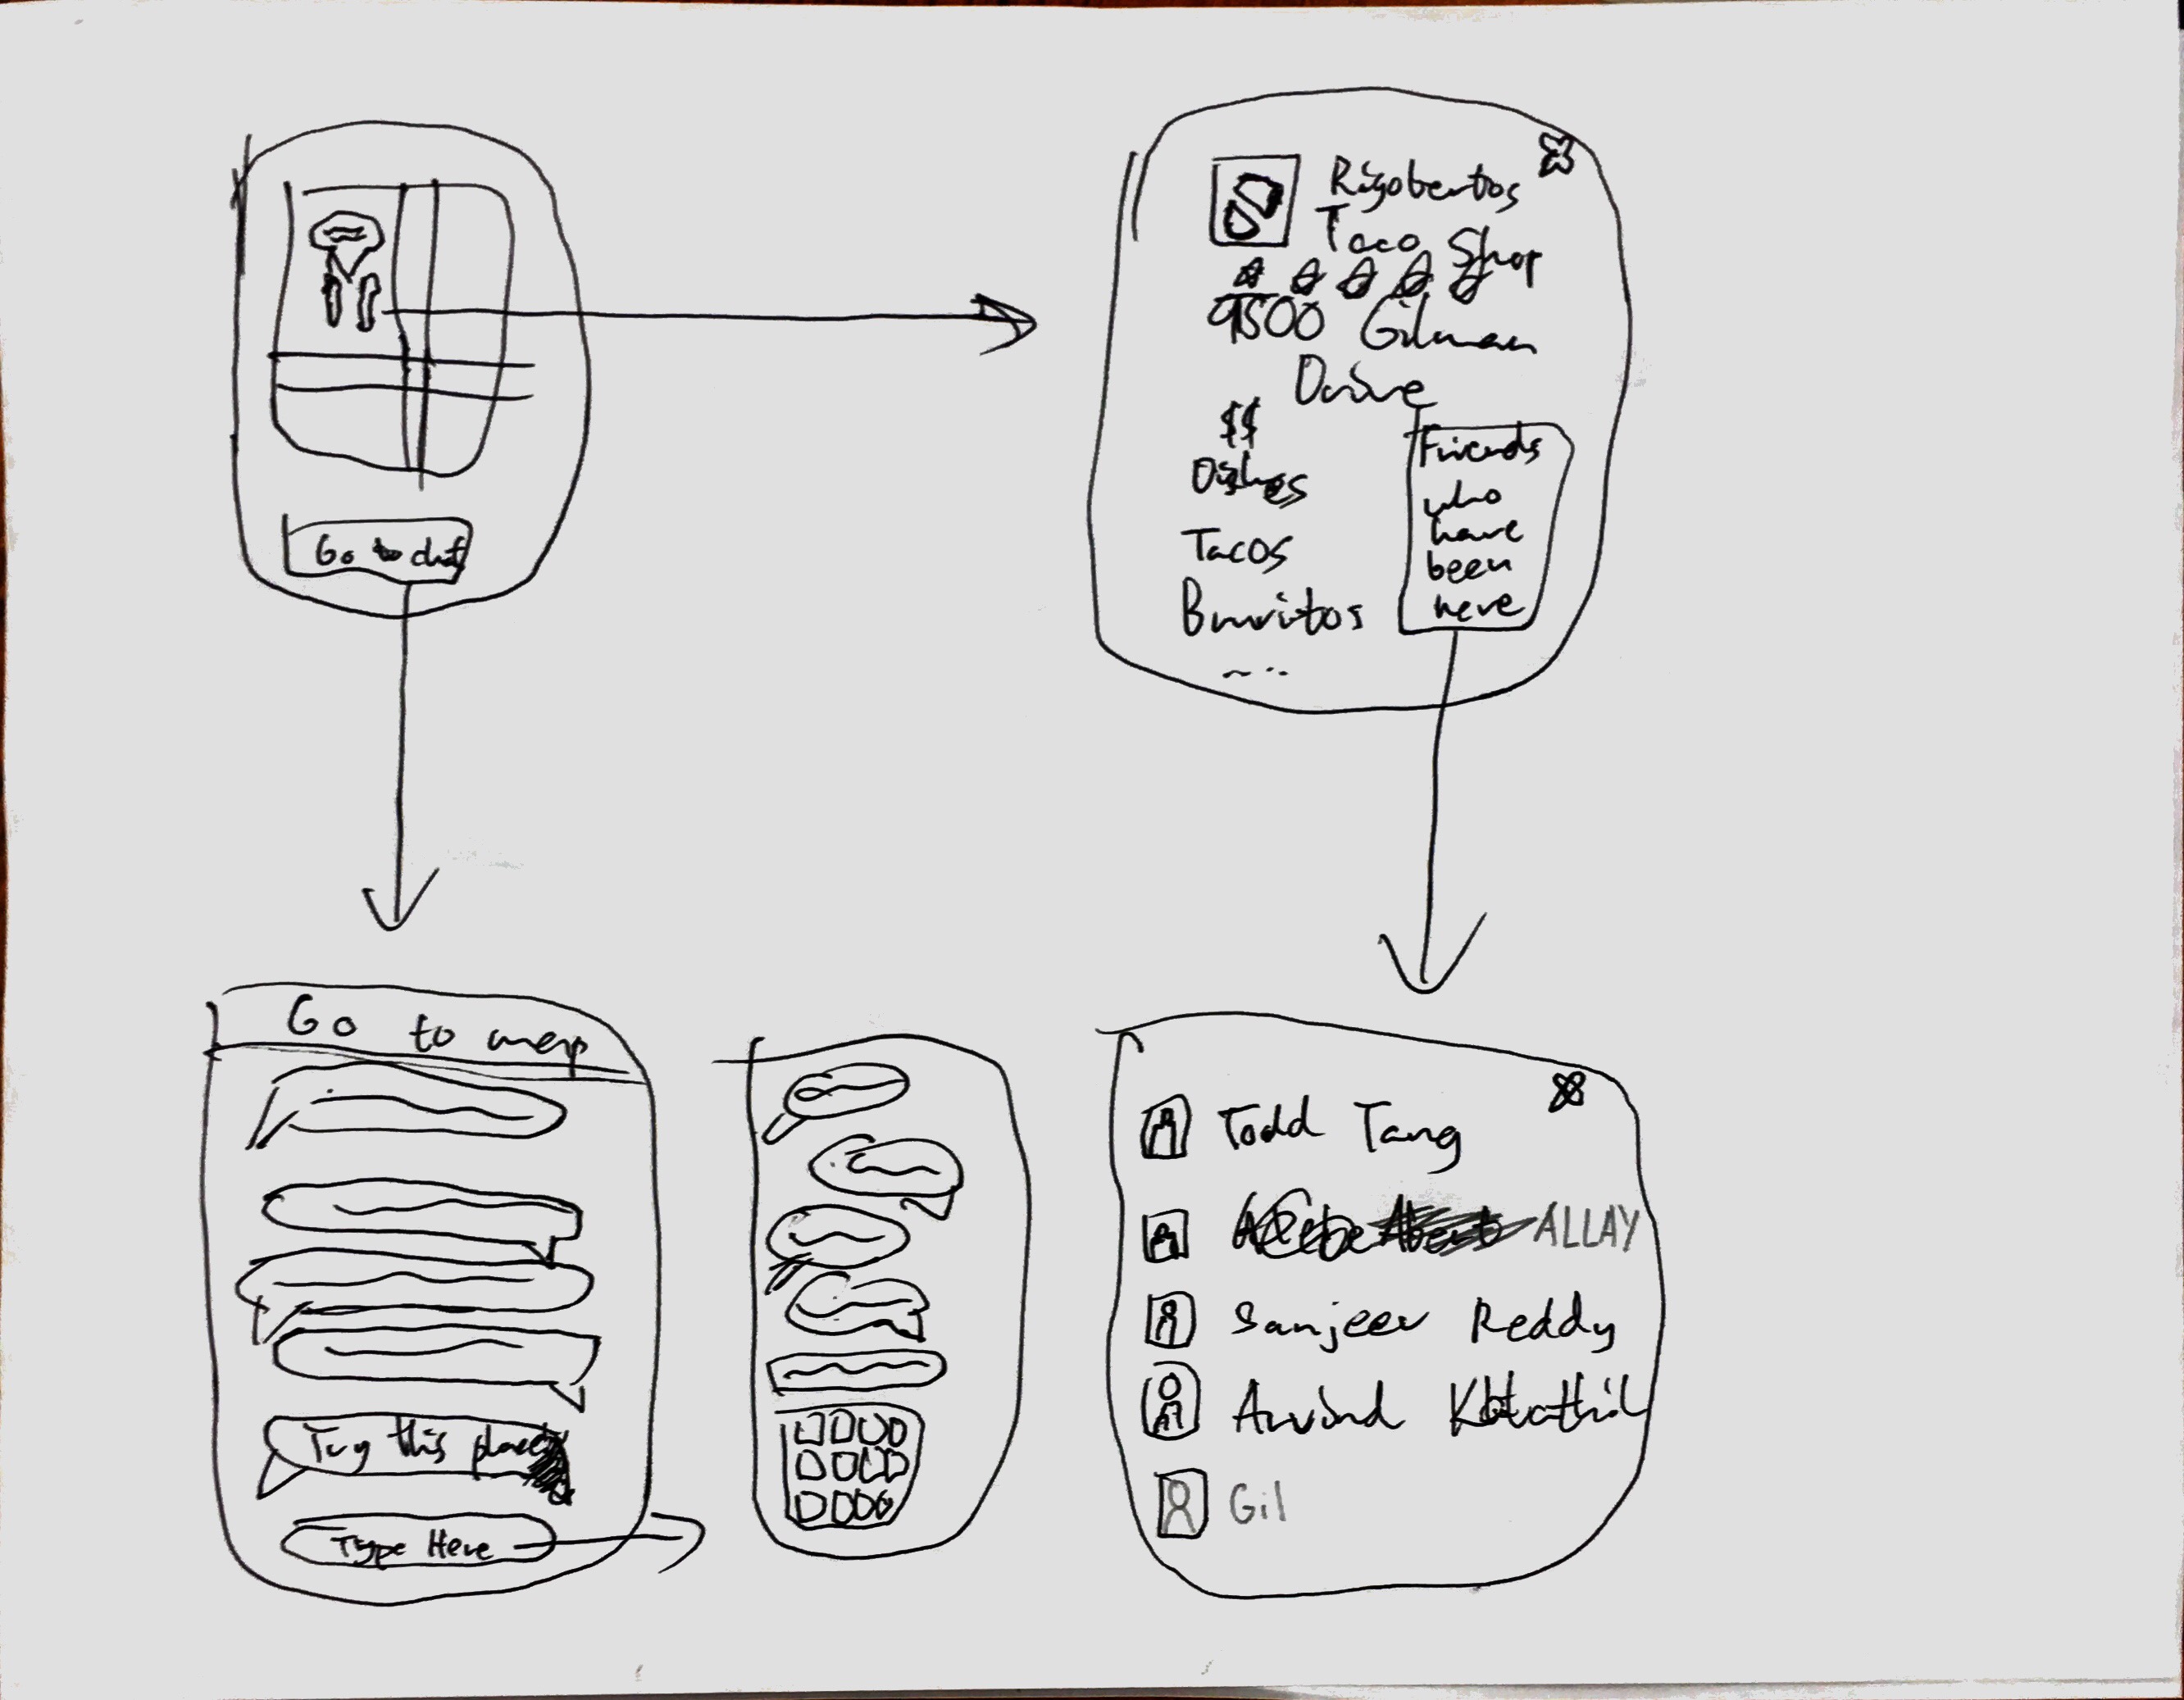 Go to chat
Rigobertos
Taco Shop
9500 Gilman
Drive
$$
Dishes
Tacos
Burritos
...
Friends
who
have
been
here
Go to map
Try this place
Type Here
Todd Tang
ALLAY
Sanjeev Reddy
Arvind
Gil